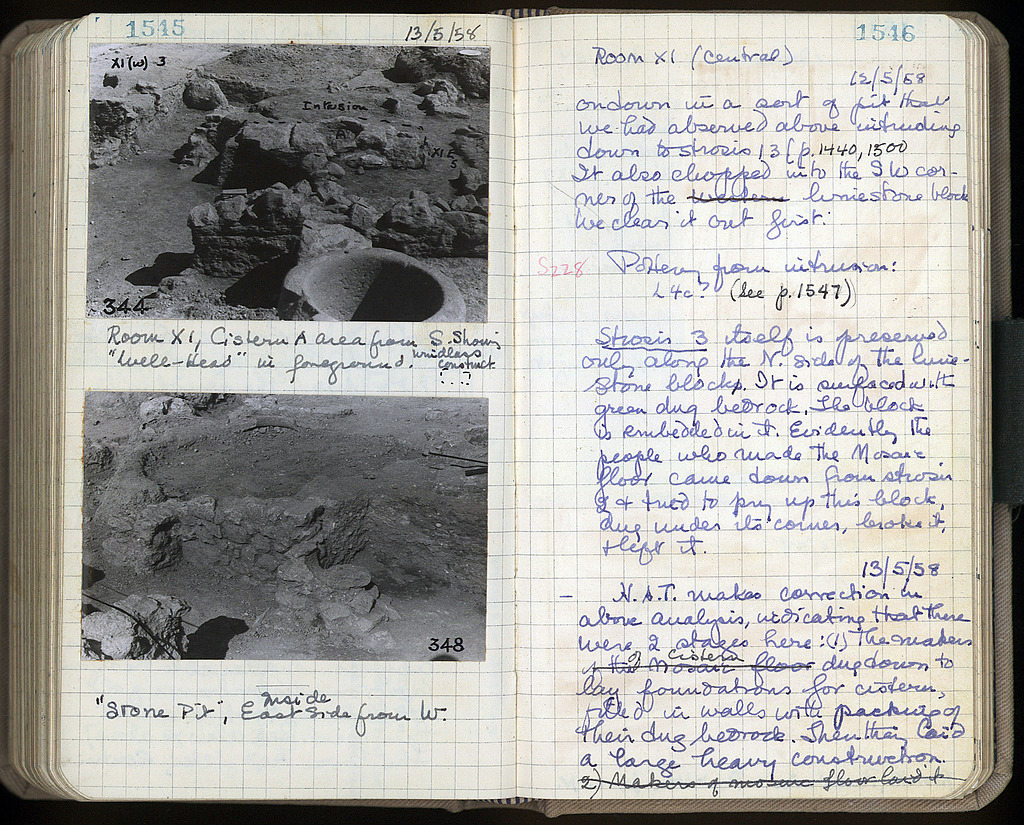 1545
13/5/58
XI(w)-3
Intrusion
A
XI
S
344
Room XI, Cistern A area from S. Showing
"Well-Head" in foreground. windlass
construct.
[...?]
348
"Stone Pit", Inside East Side from W.
1546
Room XI (central)
12/5/58
on down in a sort of pit that
we had observed above intruding
down to strosis 13 (p. 1440, 1500
It also chopped into the SW cor-
ner of the western limestone block
We clear it out first:
S228 Pottery from intrusion:
L4c? (See p. 1547)
Strosis 3 itself is preserved
only along the N. side of the lime-
stone blocks. It is surfaced with
green dug bedrock. The block
is embedded in it. Evidently the
people who made the Mosaic
floor came down from strosis
2 & tried to pry up this block,
dug under its corner, broke it,
& left it.
13/5/58
– N.A.T. makes correction in
above analysis, indicating that there
were 2 stages here: (1) The makers
of the Mosaic floor of cistern dug down to
lay foundations for cistern,
filled in walls with packing of
their dug bedrock. Then they laid
a large heavy construction.
2) Makers of mosaic floor laid it